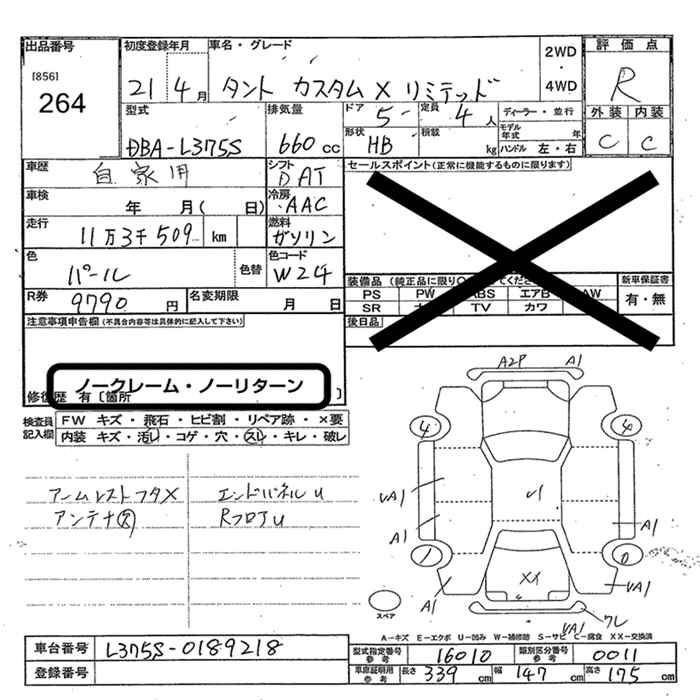 出品番号
[856]
264
初度登録年月
21 4月
車名・グレード
タント カスタム X リミテッド
2WD
・
4WD
評価点
R
型式
DBA-L375S
排気量
660 cc
ドア
5
定員
4人
形状
HB
積載
kg
ディーラー・並行
モデル年式
年
ハンドル 左・右
外装 内装
C C
車歴
自家用
シフト
DAT
セールスポイント(正常に機能するものに限ります)
車検
年 月( 日)
冷房
AAC
走行
11万3千509 km
燃料
ガソリン
色
パール
色替
色コード
W24
装備品
新車保証書
PS PW ABS エアB AW
SR TV カワ
有・無
R券
9790円
名変期限
月 日
後日品
注意事項申告欄(不具合内容等は具体的に記入して下さい)
ノークレーム・ノーリターン
修復歴 有 [箇所 ]
検査員記入欄
FW キズ・飛石・ヒビ割・リペア跡・×要
内装 キズ・汚レ・コゲ・穴・スレ・キレ・破レ
アームレストフタX
エンドパネルU
アンテナ欠
RフロアU
A2P A1
4 6
UA1 U1
A1 A1
1 0
XX
A1 UA1
ワレ
UA1
スペア
A-キズ E-エクボ U-凹み W-補修跡 S-サビ C-腐食 XX-交換済
車台番号
L375S-0189218
登録番号
型式指定番号参考
16010
類別区分番号参考
0011
車庫証明用参考
長さ 339 cm
幅 147 cm
高さ 175 cm